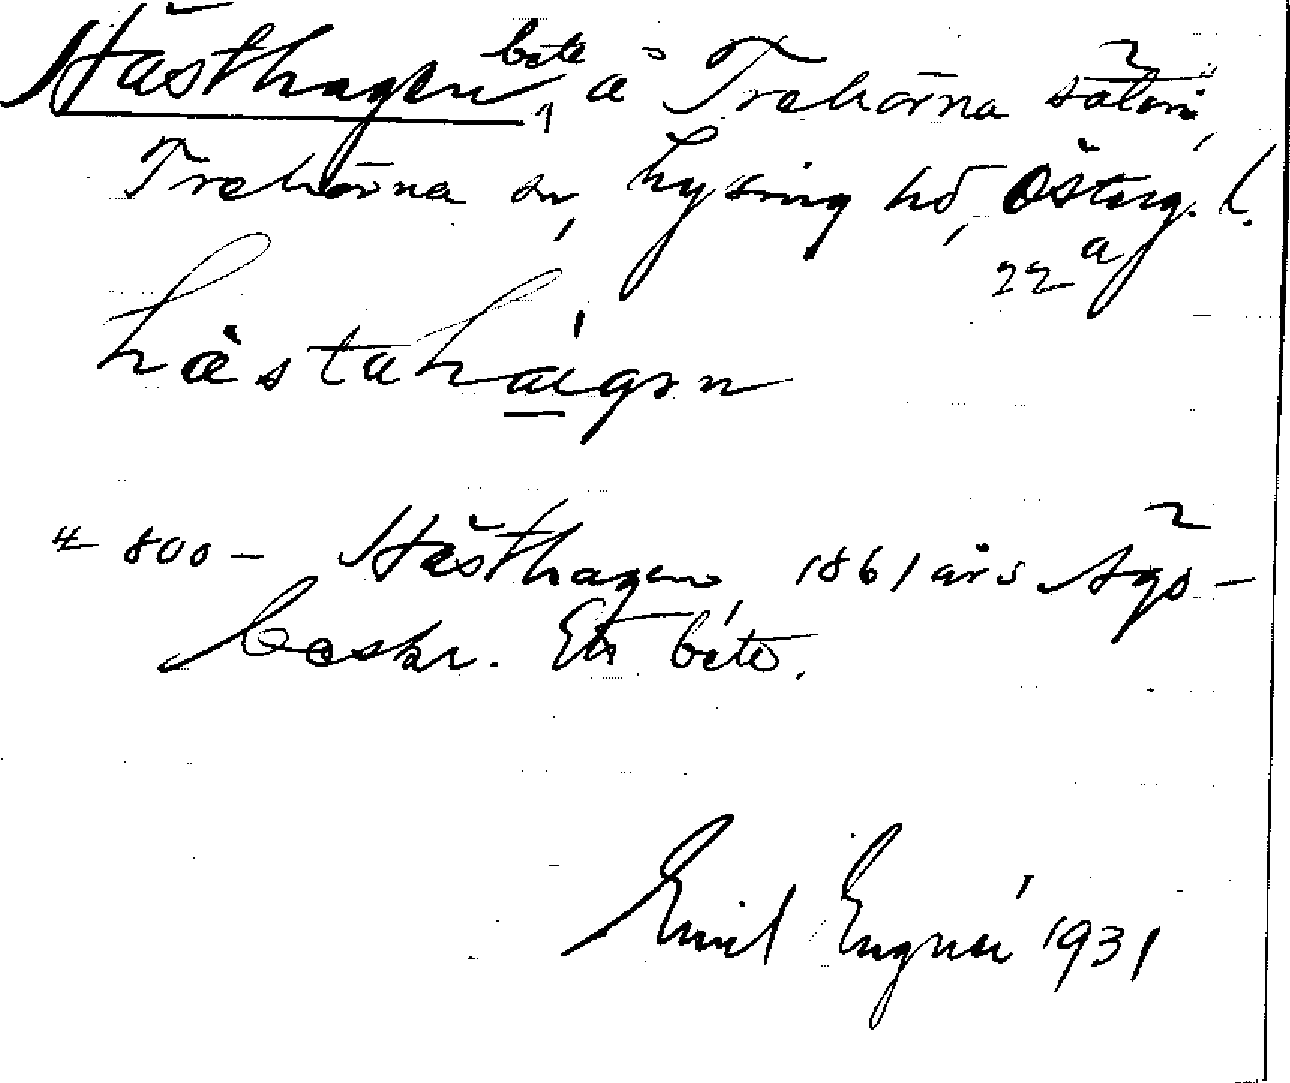 Hästhagen bete å Trehörna säteri,
Trehörna sn, Lysing hd, Österg. l.
22 af
hàstahágen
4 800 - Hästhagen, 1861 års Ägo-
beskr. Ett bete.
Emil Engné 1931